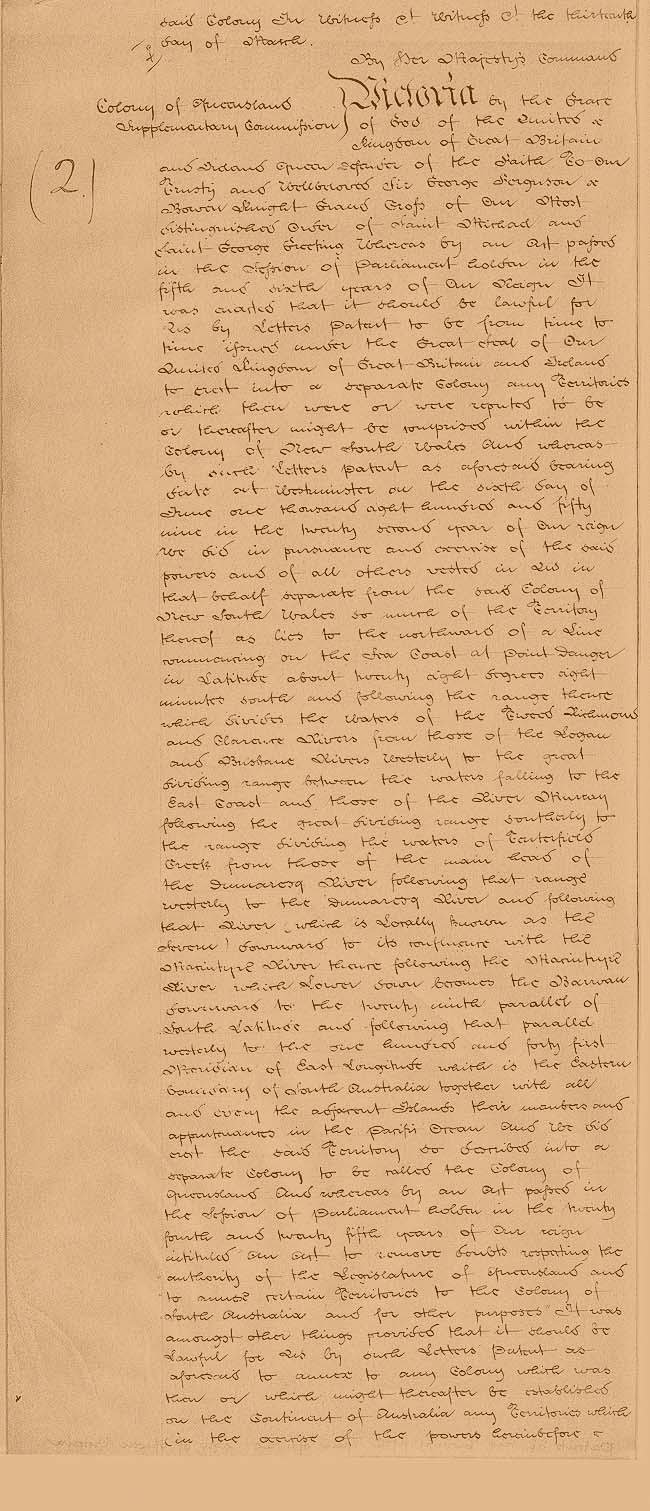 said Colony In Witness &c Witness &c the thirteenth
day of March.
By Her Majesty's Command
Colony of Queensland
Supplementary Commission
(2.)
Victoria by the Grace
of God of the United &
Kingdom of Great Britain
and Ireland Queen Defender of the Faith To Our
Trusty and Wellbeloved Sir George Ferguson &
Bowen Knight Grand Cross of Our Most
distinguished Order of Saint Michael and
Saint George Greeting Whereas by an Act passed
in the Session of Parliament holden in the
fifth and sixth years of Our Reign It
was enacted that it should be lawful for
Us by Letters Patent to be from time to
time issued under the Great Seal of Our
United Kingdom of Great Britain and Ireland
to erect into a separate Colony any Territories
which then were or were reputed to be
or thereafter might be comprised within the
Colony of New South Wales And whereas
by such Letters Patent as aforesaid bearing
date at Westminster on the sixth day of
June one thousand eight hundred and fifty
nine in the twenty second year of Our reign
We did in pursuance and exercise of the said
powers and of all others vested in Us in
that behalf separate from the said Colony of
New South Wales so much of the Territory
thereof as lies to the northward of a Line
commencing on the Sea Coast at Point Danger
in Latitude about twenty eight degrees eight
minutes south and following the range thence
which divides the waters of the Tweed Richmond
and Clarence Rivers from those of the Logan
and Brisbane Rivers Westerly to the great
dividing range between the waters falling to the
East Coast and those of the River Murray
following the great dividing range southerly to
the range dividing the waters of Tenterfield
Creek from those of the main head of
the Dumaresq River following that range
westerly to the Dumaresq River and following
that River (which is Locally known as the
Severn) downward to its confluence with the
Macintyre River thence following the Macintyre
River which Lower down becomes the Barwan
downward to the twenty ninth parallel of
South Latitude and following that parallel
westerly to the one hundred and forty first
Meridian of East Longitude which is the Eastern
boundary of South Australia together with all
and every the adjacent Islands their members and
appurtenances in the Pacific Ocean And We did
erect the said Territory so described into a
separate Colony to be called the Colony of
Queensland And whereas by an Act passed in
the Session of Parliament holden in the twenty
fourth and twenty fifth years of Our reign
intituled "An Act to remove doubts respecting the
authority of the Legislature of Queensland and
to annex certain Territories to the Colony of
South Australia and for other purposes" It was
amongst other things provided that it should be
Lawful for Us by such Letters Patent as
aforesaid to annex to any Colony which was
then or which might thereafter be established
on the Continent of Australia any Territories which
(in the exercise of the powers hereinbefore